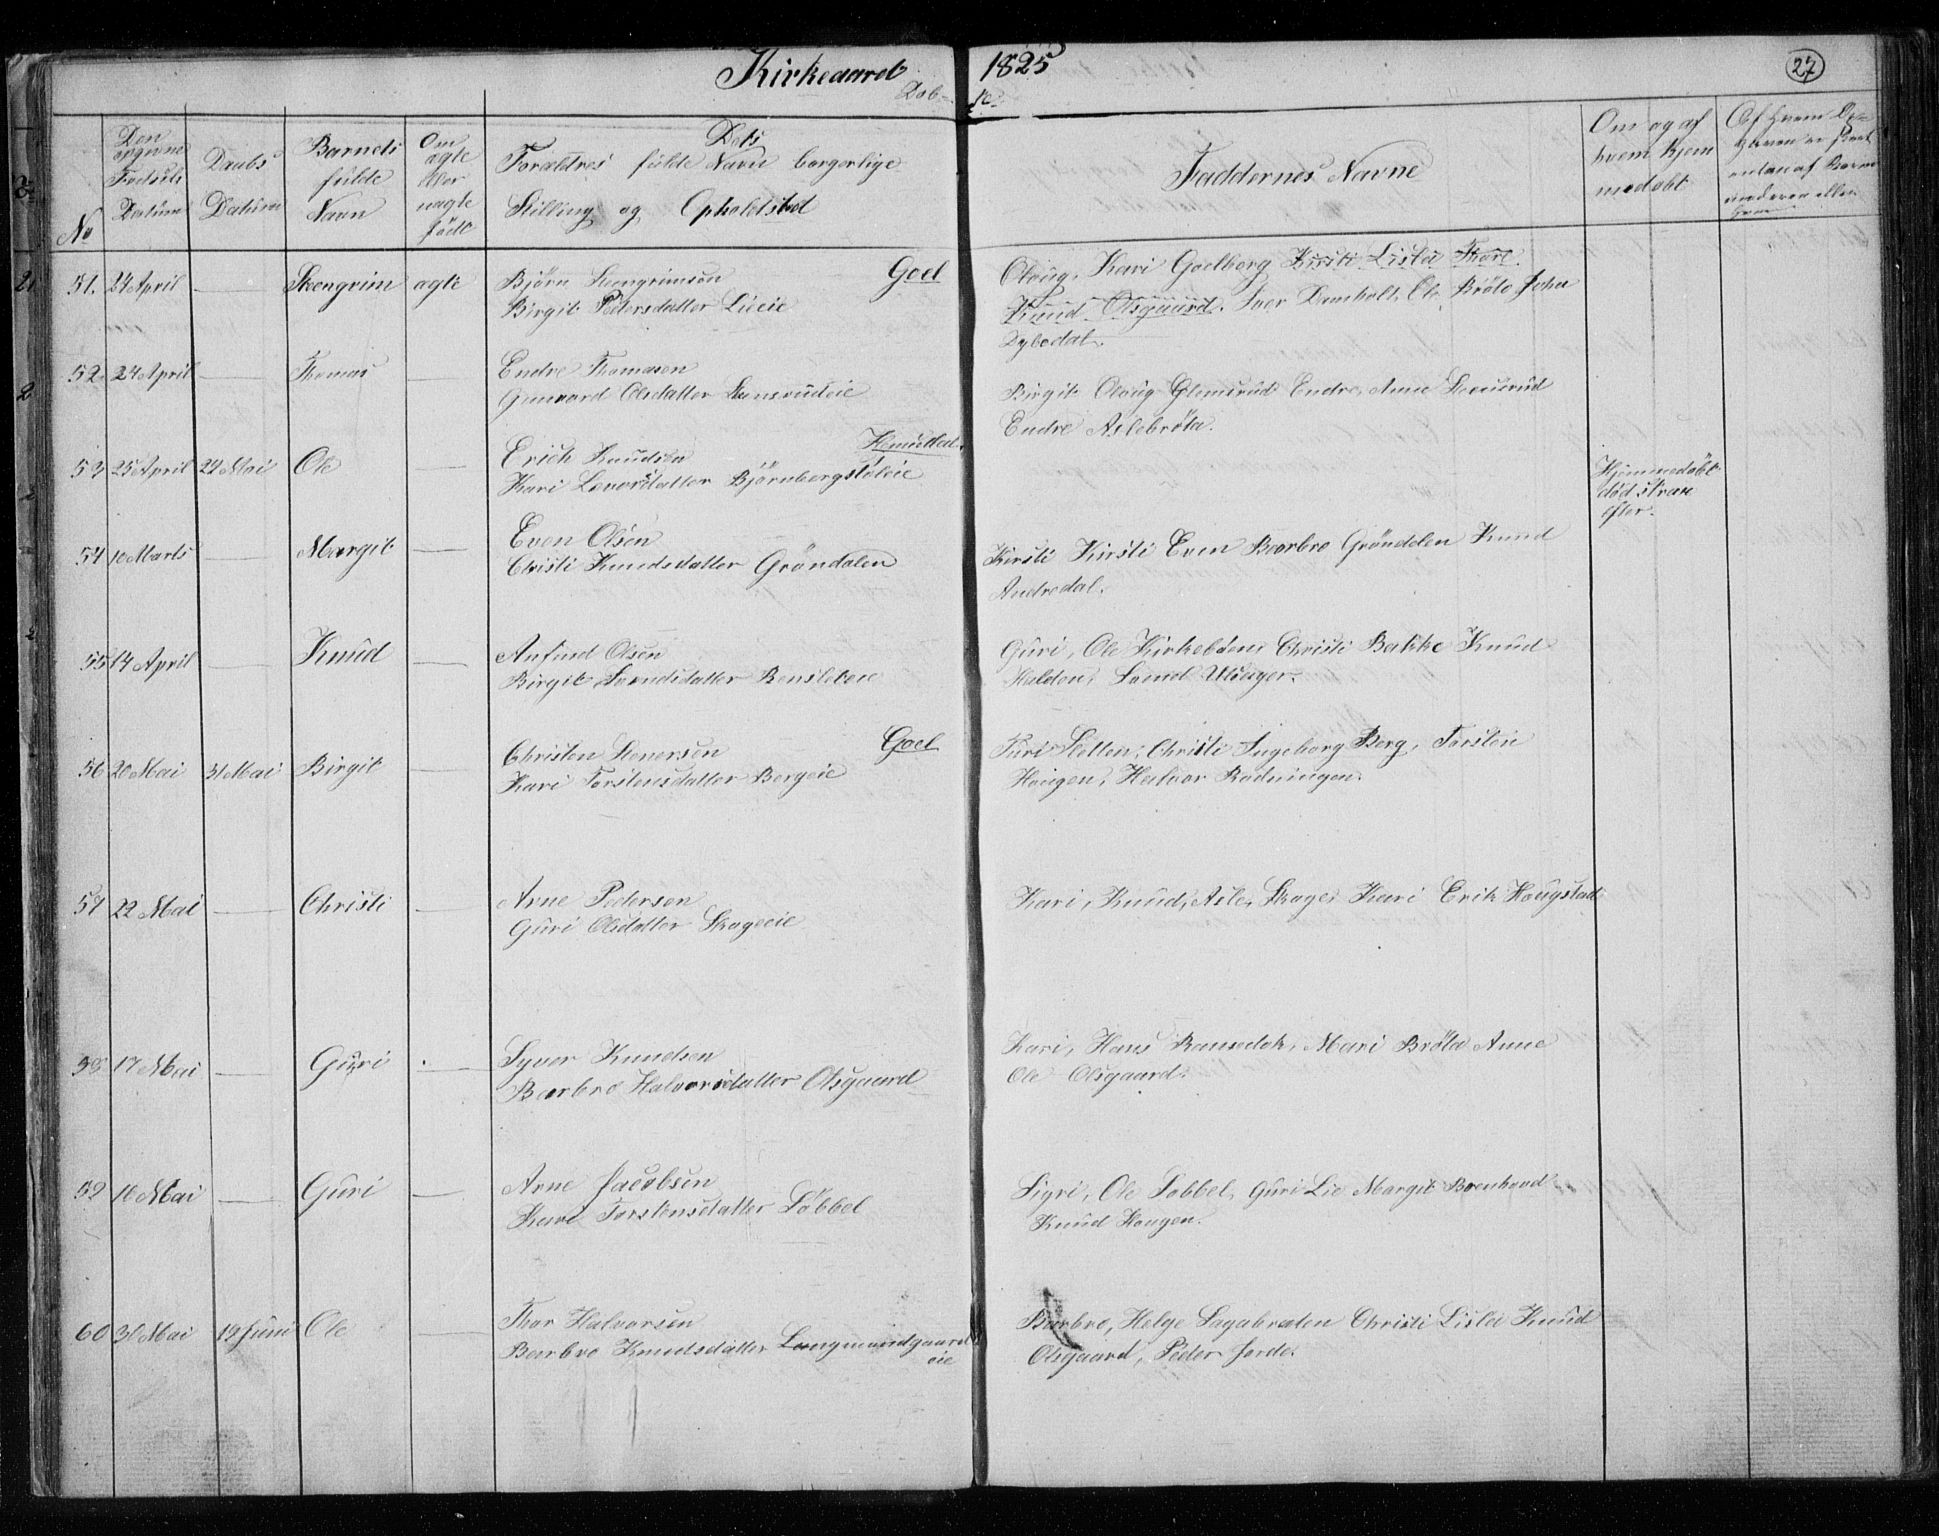 Kirkeaaret 1825
27
Daabte
No
Den opgivne Fødsels Datum
Daabs Datum
Barnets fulde Navn
Om ægte eller uægte født
Dets Forældres fulde Navn borgerlige
Stilling og Opholdsted
Faddernes Navne
Om og af hvem hjemmedøbt
51. 24 April — Steengrim ægte Bjørn Steengrimsøn Goel
Birgit Pedersdatter Lieeie
Oloug, Kari Goelberg Kirsti Lislei Thore
Knud Olsgaard. Iver Damholt, Ole Brøto John
Dybedal.
52. 24 April — Thomas — Endre Thomasen
Gunvord Olsdatter
Birgit Oloug Glemsrud Endre, Anne
Endre Aslebrøta.
53 25 April 24 Mai Ole — Erich Knudsen Hemsedal.
Kari Bjørnbergstøleie
Hjemmedøbt
død strax
efter.
54 10 Marts — Margit — Even Olsen
Christi Knudsdatter Grøndalen
Kirsti Kirsti Even Barbro Grøndelen Knud
Andredal.
55 14 April — Knud — Anfind Olsen
Birgit Svendsdatter
Guri, Ole Kirkebøen Christi Bakke Knud
Halden, Svend Ulsager.
56 20 Mai 31 Mai Birgit — Christen Stenersen Goel
Kari Torstensdatter Bergeie
Turi Sletten, Christi Ingeborg Berg, Torsten
Hougen, Halvor Rodningen.
57 22 Mai — Christi — Arne Pedersen
Guri Olsdatter Skageeie
Kari, Knud, Asle, Skage, Kari Erik Hougstad
58 17 Mai — Guri — Syver Knudsen
Barbro Halvorsdatter Olsgaard
Kari, Hans Ramsedok, Mari Brøto Anne
Ole Olsgaard.
59 16 Mai — Guri — Arne Jacobsen
Kari Torstensdatter Løbbel
Sigri, Ole Løbbel, Guri Lie Margit
Knud Hougen.
60 30 Mai 12 Juni Ole — Thor Halvorsen
Barbro Knudsdatter
eie
Barbro, Helge Sagabraten Christi Lislei Knud
Olsgaard, Peder Jorde.